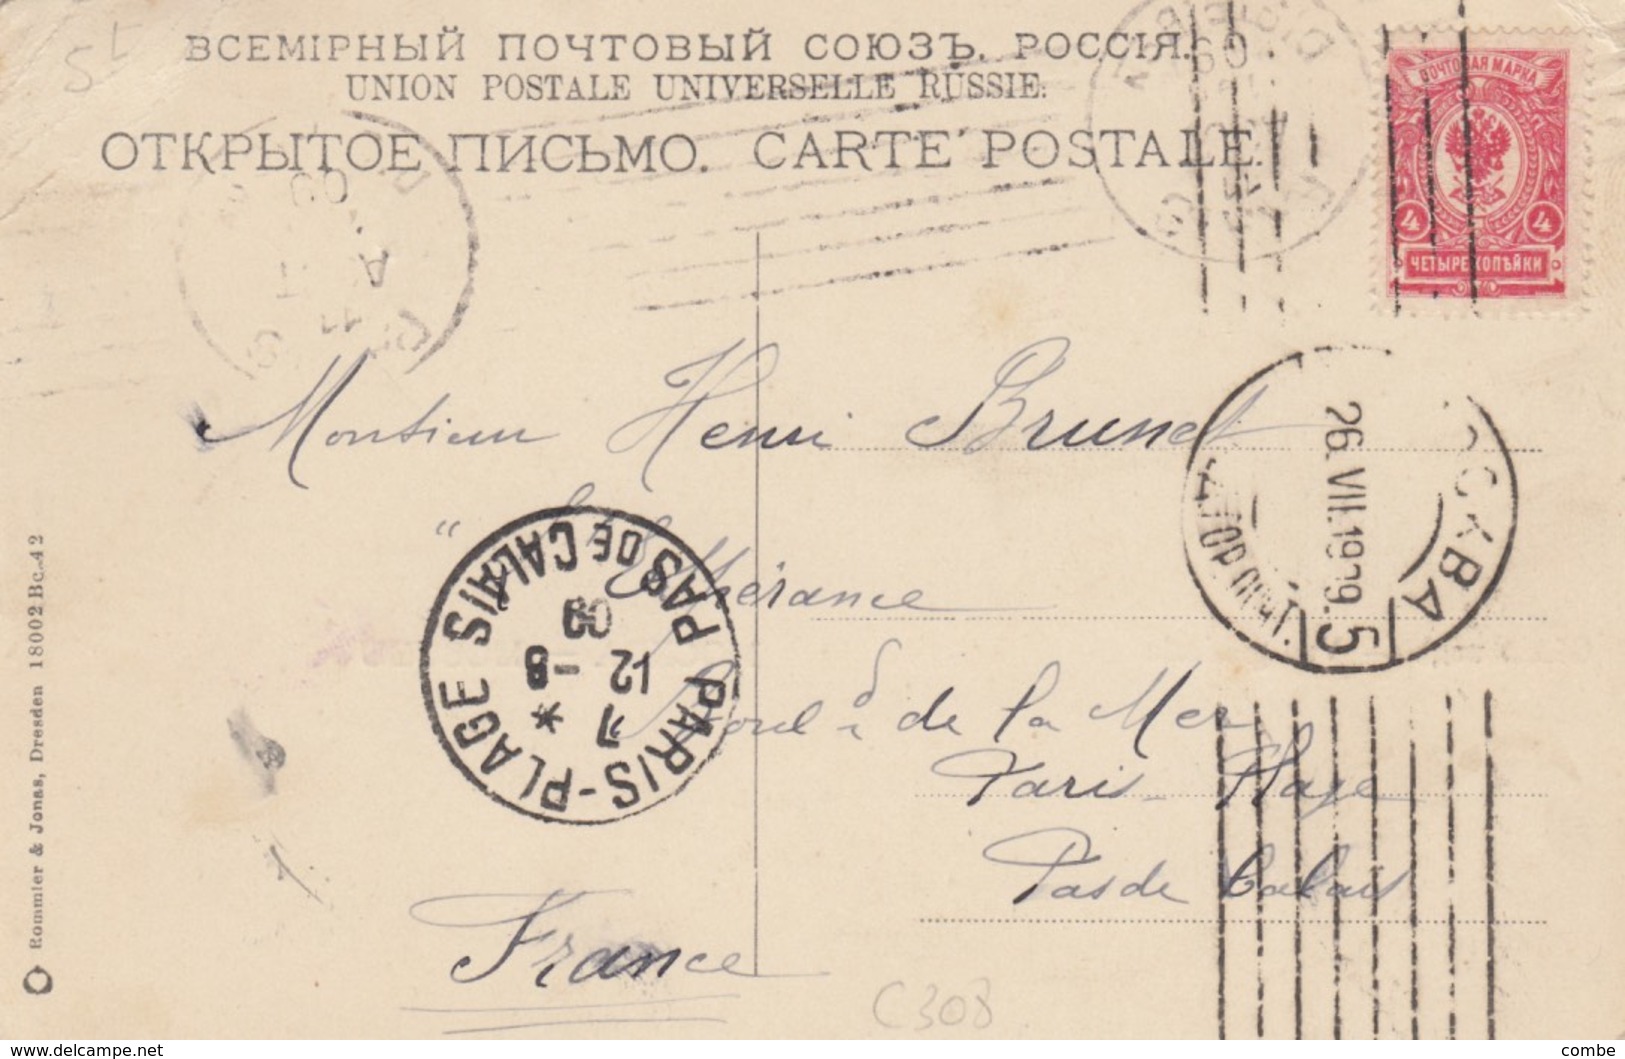 ВСЕМІРНЫЙ ПОЧТОВЫЙ СОЮЗЪ. РОССІЯ.
UNION POSTALE UNIVERSELLE RUSSIE.
ОТКРЫТОЕ ПИСЬМО. CARTE POSTALE.
ПОЧТОВАЯ МАРКА
4 4
ЧЕТЫРЕ КОПѢЙКИ
09
09
11
Monsieur Henri Brunet
26.VII.1909.
5
PARIS-PLAGE
PAS DE CALAIS
7 *
12 -8
09
"L'Espérance
Boul d de la Mer
Paris Plage
Pas de Calais
France
C308
Rommler & Jonas, Dresden 18002 Bc.42
delcampe.net
combe